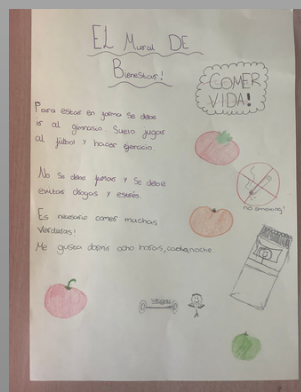 EL Mural DE
Bienestar!
COMER
VIDA!
Para estar en forma se debe
ir al gimnasio. Suelo jugar
al fútbol y hacer ejercicio.
No se debe fumar y se debe
evitar drogas y estrés.
Es necesario comer muchas
verduras!
Me gusta dormir ocho horas, cada noche.
no smoking!